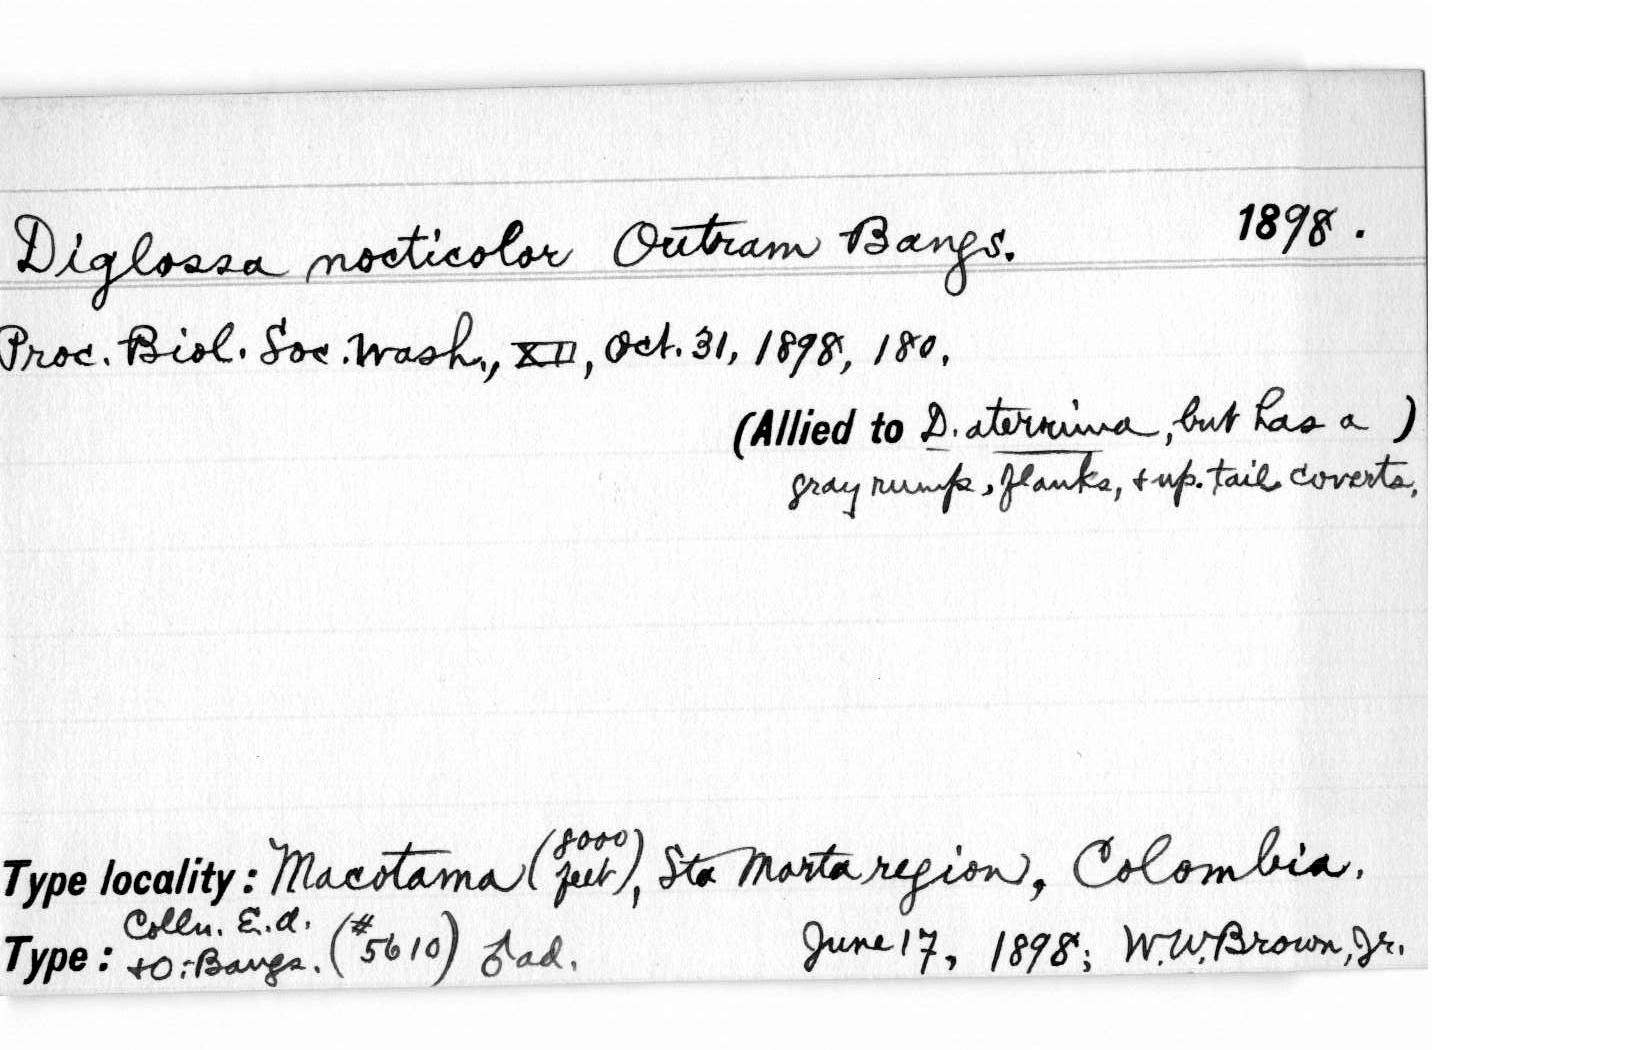 Diglossa nocticolor Outram Bangs. 1898.
Proc. Biol. Soc. Wash., XII, Oct. 31, 1898, 180.
(Allied to D. aterrima, but has a )
gray rump, flanks, + up. tail coverts.
Type locality: Macotama (8000 feet), Sta Marta region, Colombia.
Type: Colln. E.A. + O. Bangs. (#5610) ♂ ad. June 17, 1898; W.W. Brown, Jr.